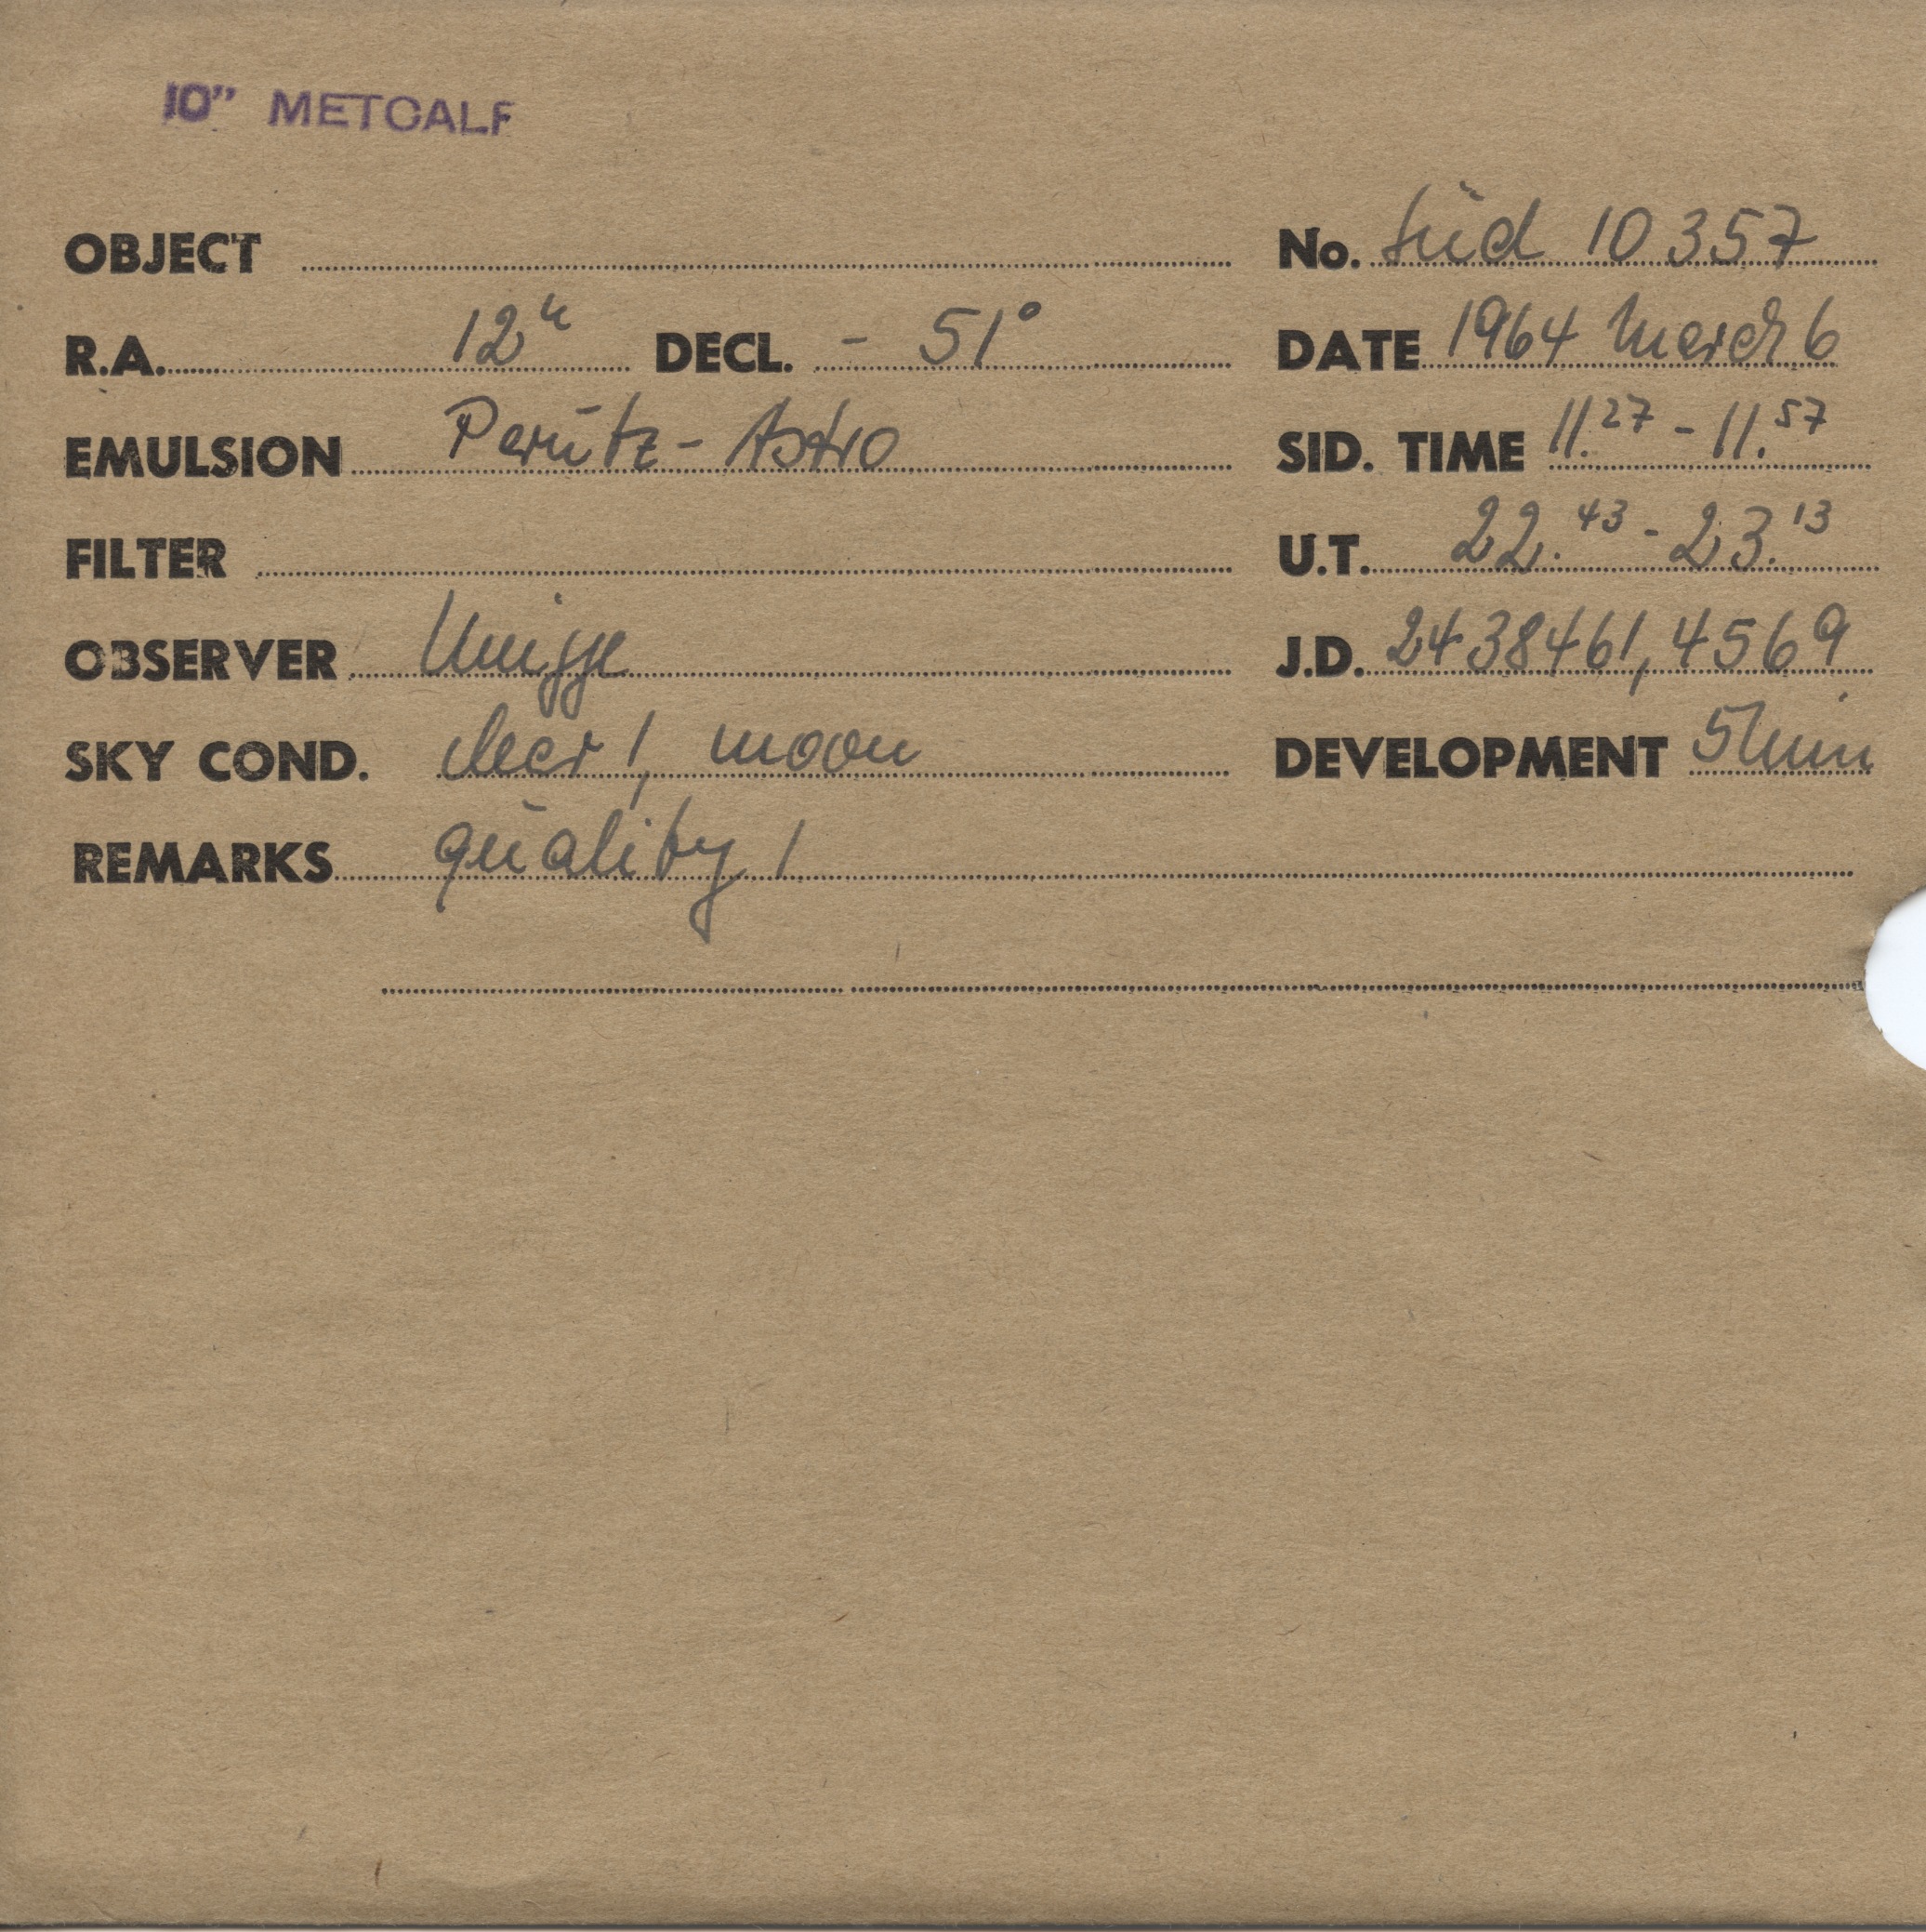 10" METCALF
OBJECT No. Süd 10357
R.A. 12h DECL. - 51°
DATE 1964 March 6
EMULSION Perutz - Astro
SID. TIME 11.27 - 11.57
FILTER
U.T. 22.43 - 23.13
OBSERVER
J.D. 2438461,4569
SKY COND. clear 1, moon
DEVELOPMENT 5 min
REMARKS quality 1